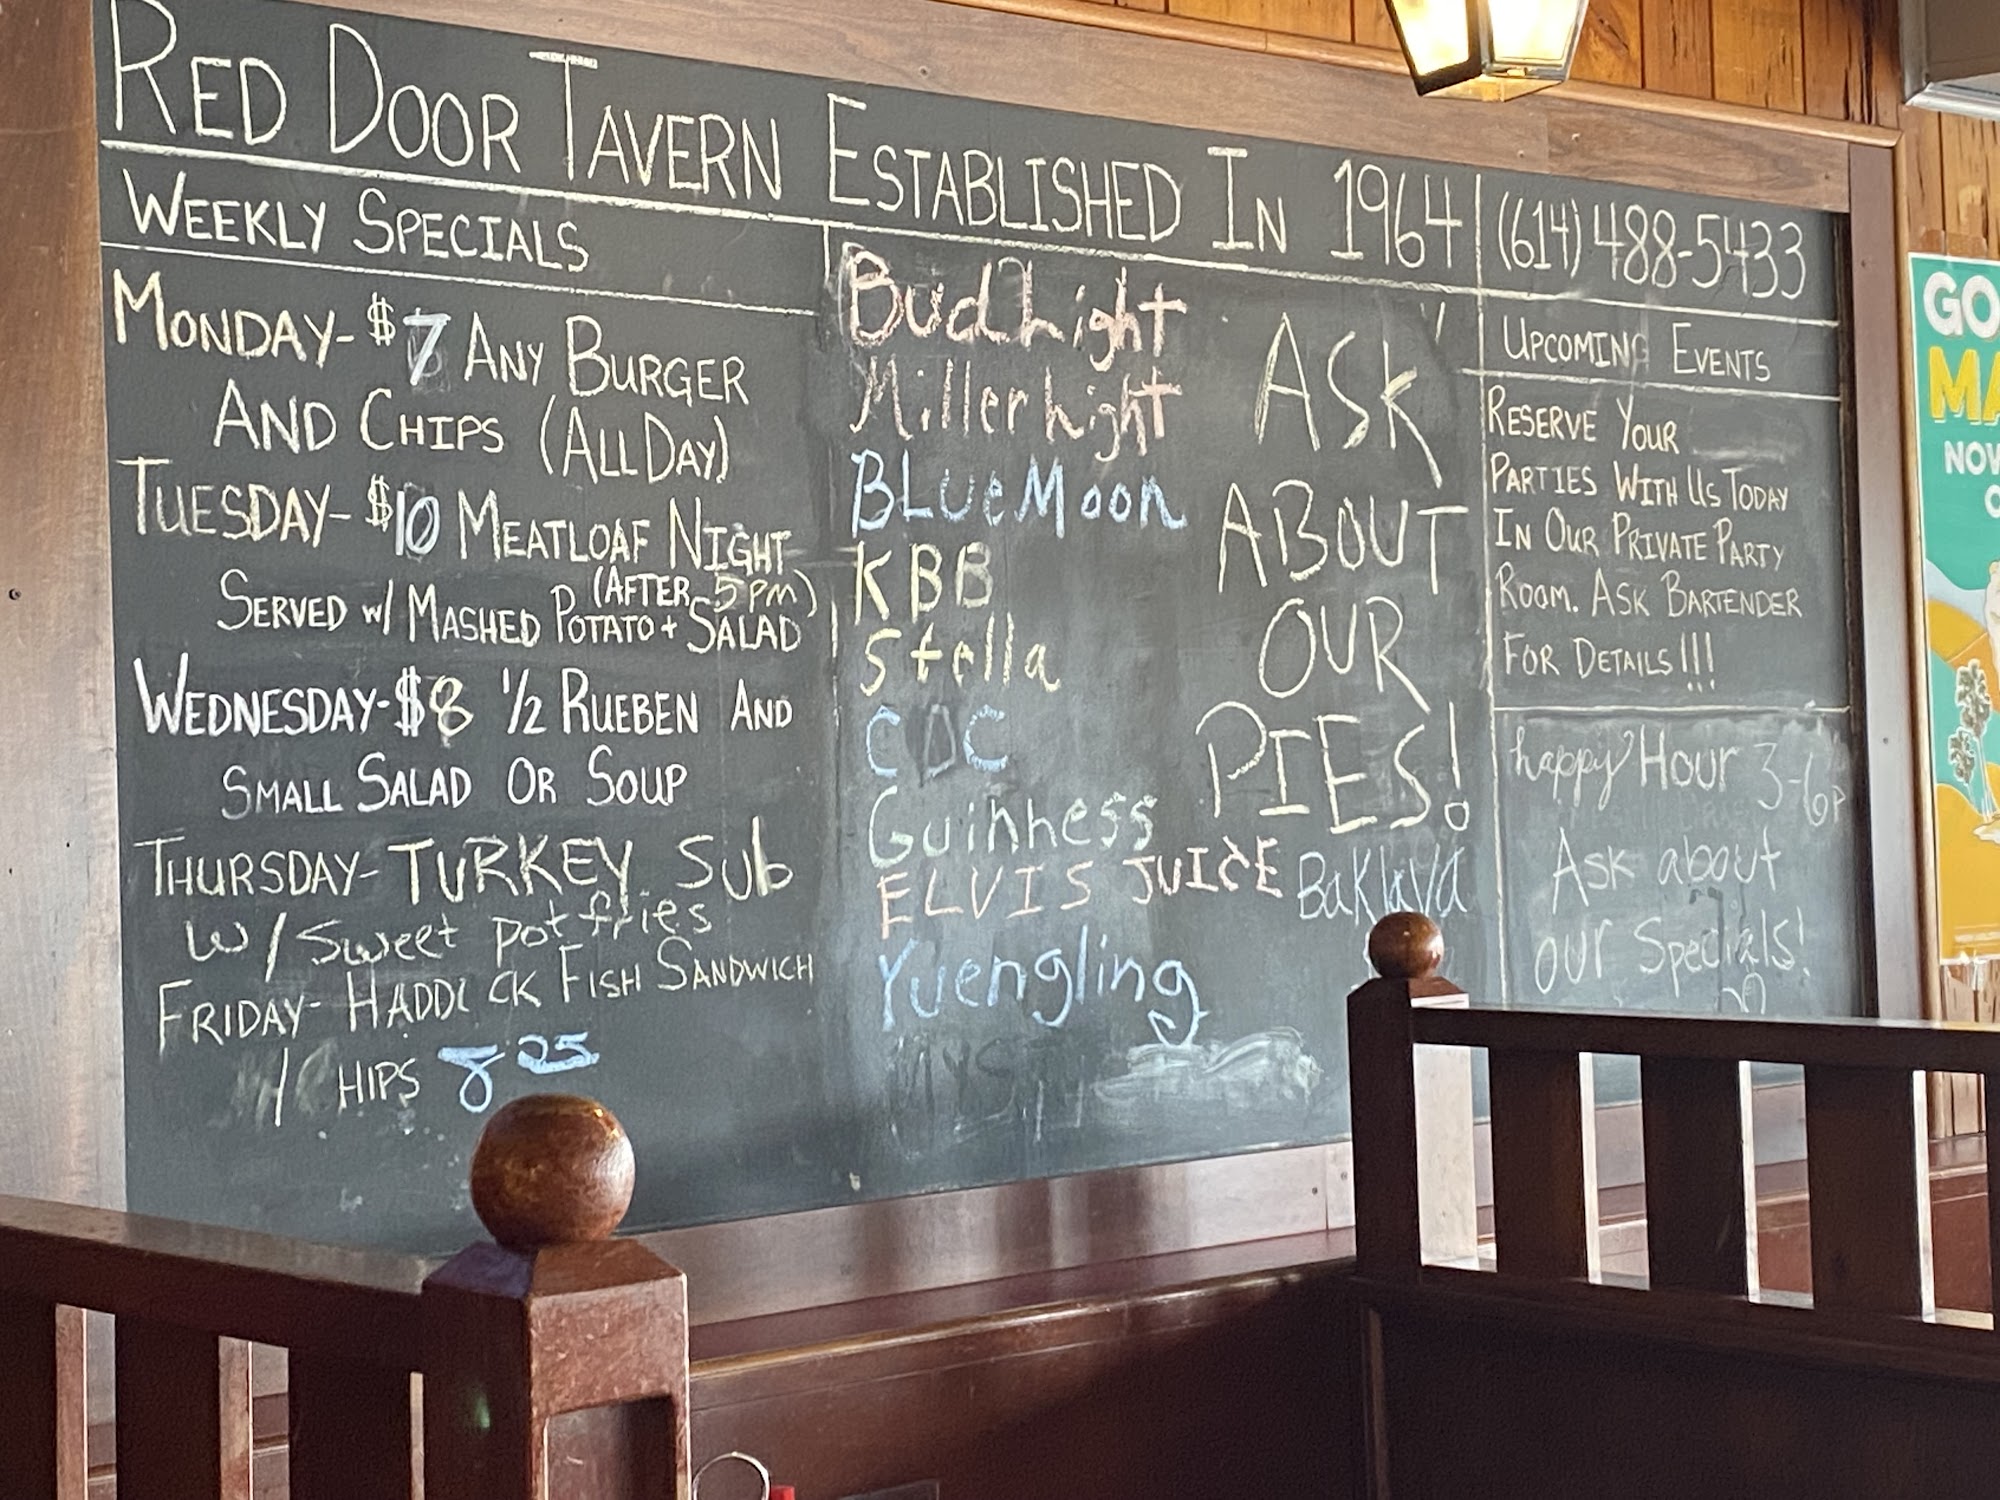 RED DOOR TAVERN ESTABLISHED IN 1964
(614) 488-5433
WEEKLY SPECIALS
MONDAY- $7 ANY BURGER
AND CHIPS (ALL DAY)
TUESDAY- $10 MEATLOAF NIGHT
(AFTER 5PM)
SERVED w/ MASHED POTATO + SALAD
WEDNESDAY- $8 1/2 RUEBEN AND
SMALL SALAD OR SOUP
THURSDAY- TURKEY SUb
w/ Sweet pot fries
FRIDAY- HADDICK FISH SANDWICH
/ CHIPS 8 25
Bud Light
Miller Light
BLUe Moon
KBB
Stella
CDC
Guinness
ELVIS JUICE
Yuengling
ASK
ABOUT
OUR
PIES!
BaKlava
UPCOMING EVENTS
RESERVE YOUR
PARTIES WITH US TODAY
IN OUR PRIVATE PARTY
ROOM. ASK BARTENDER
FOR DETAILS!!!
happy Hour 3-6P
Ask about
our Specials!
GO
MA
NOV